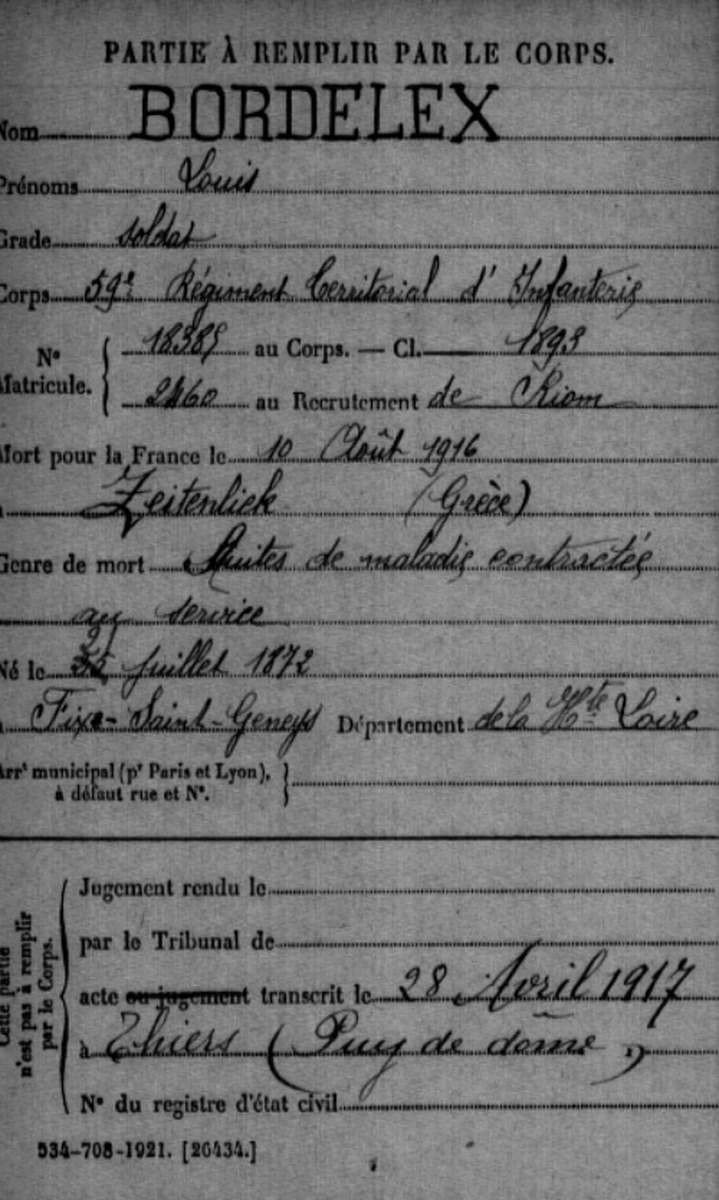 PARTIE À REMPLIR PAR LE CORPS.
Nom BORDELEX
Prénoms Louis
Grade soldat
Corps 59e Régiment Territorial d'Infanterie
No Matricule. 18385 au Corps. — Cl. 1893
2460 au Recrutement de Riom
Mort pour la France le 10 Août 1916
à Zeitenlick (Grèce)
Genre de mort Suites de maladie contractée
au service
Né le juillet 1872
à Fix-Saint-Geneys Département de la Hte Loire
Arrt municipal (pr Paris et Lyon),
à défaut rue et No.
Cette partie
n'est pas à remplir
par le Corps.
Jugement rendu le
par le Tribunal de
acte ou jugement transcrit le 28 Avril 1917
à Thiers (Puy de dôme)
No du registre d'état civil
534-708-1921. [26434.]